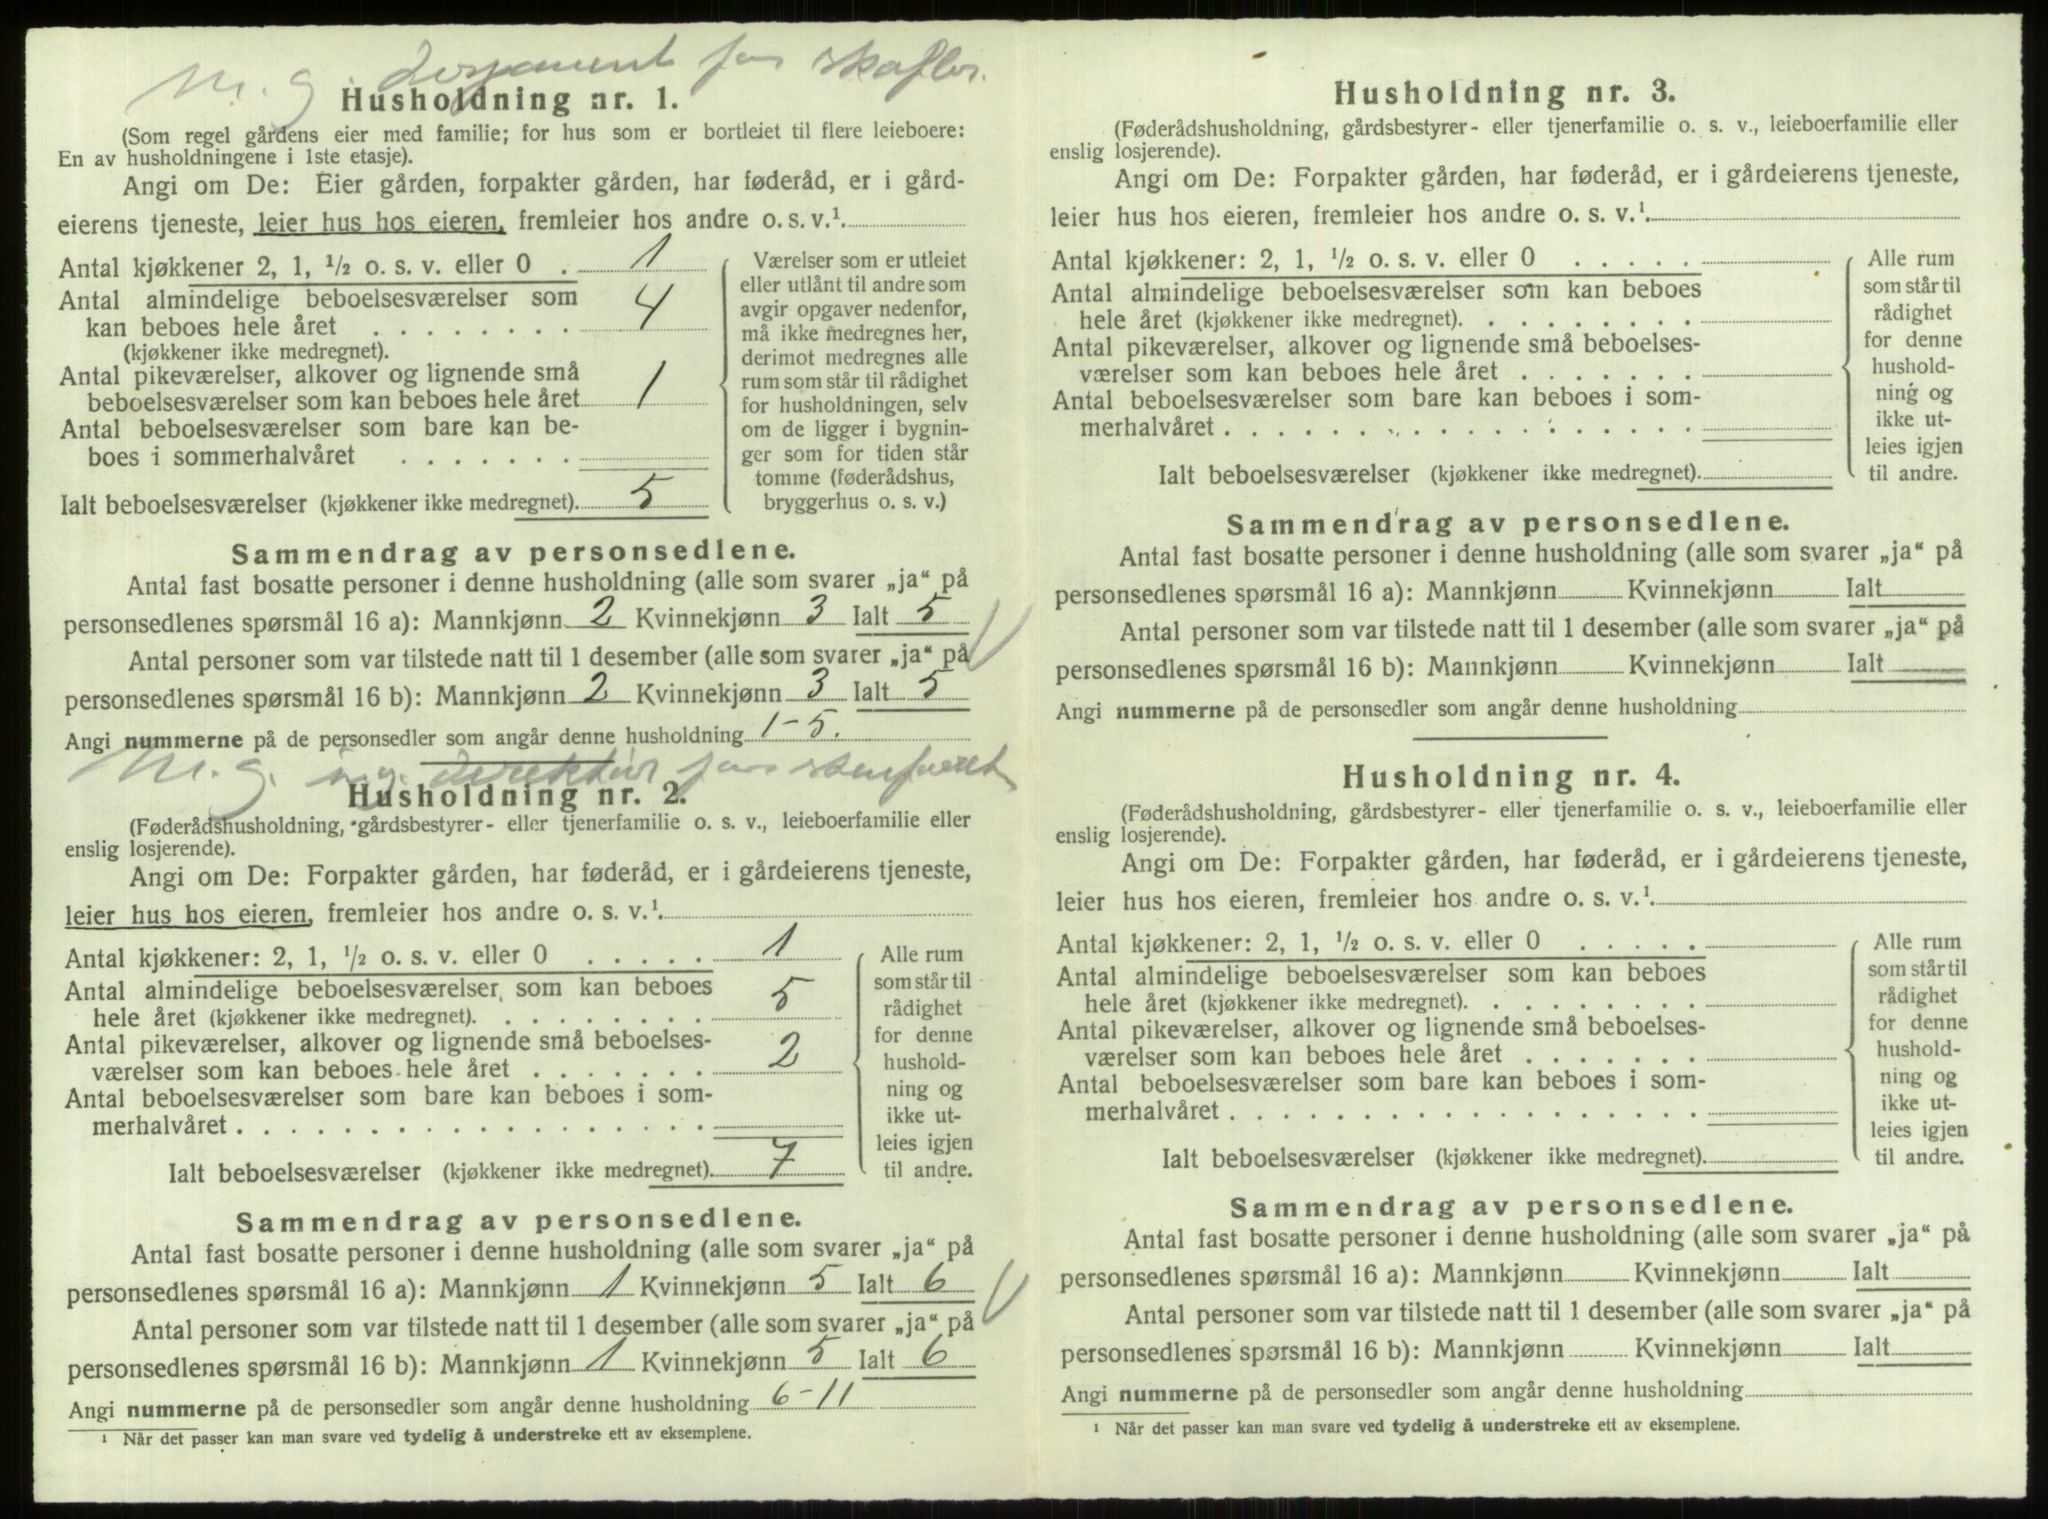 M. g.
Husholdning nr. 1.
(Som regel gårdens eier med familie; for hus som er bortleiet til flere leieboere:
En av husholdningene i 1ste etasje).
Angi om De: Eier gården, forpakter gården, har føderåd, er i gård-
eierens tjeneste, leier hus hos eieren, fremleier hos andre o. s. v.¹.
Antal kjøkkener 2, 1, ½ o. s. v. eller 0 . 1
Antal almindelige beboelsesværelser som
kan beboes hele året . . . . . . . . 4
(kjøkkener ikke medregnet).
Antal pikeværelser, alkover og lignende små
beboelsesværelser som kan beboes hele året 1
Antal beboelsesværelser som bare kan be-
boes i sommerhalvåret . . . . . . .
Ialt beboelsesværelser (kjøkkener ikke medregnet). 5
Værelser som er utleiet
eller utlånt til andre som
avgir opgaver nedenfor,
må ikke medregnes her,
derimot medregnes alle
rum som står til rådighet
for husholdningen, selv
om de ligger i bygnin-
ger som for tiden står
tomme (føderådshus,
bryggerhus o. s. v.)
Sammendrag av personsedlene.
Antal fast bosatte personer i denne husholdning (alle som svarer „ja“ på
personsedlenes spørsmål 16 a): Mannkjønn 2 Kvinnekjønn 3 Ialt 5
Antal personer som var tilstede natt til 1 desember (alle som svarer „ja“ på
personsedlenes spørsmål 16 b): Mannkjønn 2 Kvinnekjønn 3 Ialt 5
Angi nummerne på de personsedler som angår denne husholdning 1-5.
M. g. direktør
Husholdning nr. 2.
(Føderådshusholdning, gårdsbestyrer- eller tjenerfamilie o. s. v., leieboerfamilie eller
enslig losjerende).
Angi om De: Forpakter gården, har føderåd, er i gårdeierens tjeneste,
leier hus hos eieren, fremleier hos andre o. s. v.¹.
Antal kjøkkener: 2, 1, ½ o. s. v. eller 0 . . . . . 1
Antal almindelige beboelsesværelser som kan beboes
hele året (kjøkkener ikke medregnet). . . . . . . . . 5
Antal pikeværelser, alkover og lignende små beboelses-
værelser som kan beboes hele året . . . . . . . 2
Antal beboelsesværelser som bare kan beboes i som-
merhalvåret . . . . . . . . . . . . . . . . . .
Ialt beboelsesværelser (kjøkkener ikke medregnet). 7
Alle rum
som står til
rådighet
for denne
hushold-
ning og
ikke ut-
leies igjen
til andre.
Sammendrag av personsedlene.
Antal fast bosatte personer i denne husholdning (alle som svarer „ja“ på
personsedlenes spørsmål 16 a): Mannkjønn 1 Kvinnekjønn 5 Ialt 6
Antal personer som var tilstede natt til 1 desember (alle som svarer „ja“ på
personsedlenes spørsmål 16 b): Mannkjønn 1 Kvinnekjønn 5 Ialt 6
Angi nummerne på de personsedler som angår denne husholdning 6-11
¹ Når det passer kan man svare ved tydelig å understreke ett av eksemplene.
Husholdning nr. 3.
(Føderådshusholdning, gårdsbestyrer- eller tjenerfamilie o. s. v., leieboerfamilie eller
enslig losjerende).
Angi om De: Forpakter gården, har føderåd, er i gårdeierens tjeneste,
leier hus hos eieren, fremleier hos andre o. s. v.¹.
Antal kjøkkener: 2, 1, ½ o. s. v. eller 0 . . . . .
Antal almindelige beboelsesværelser som kan beboes
hele året (kjøkkener ikke medregnet). . . . . . . . .
Antal pikeværelser, alkover og lignende små beboelses-
værelser som kan beboes hele året . . . . . . .
Antal beboelsesværelser som bare kan beboes i som-
merhalvåret . . . . . . . . . . . . . . . . . .
Ialt beboelsesværelser (kjøkkener ikke medregnet).
Alle rum
som står til
rådighet
for denne
hushold-
ning og
ikke ut-
leies igjen
til andre.
Sammendrag av personsedlene.
Antal fast bosatte personer i denne husholdning (alle som svarer „ja“ på
personsedlenes spørsmål 16 a): Mannkjønn Kvinnekjønn Ialt
Antal personer som var tilstede natt til 1 desember (alle som svarer „ja“ på
personsedlenes spørsmål 16 b): Mannkjønn Kvinnekjønn Ialt
Angi nummerne på de personsedler som angår denne husholdning
Husholdning nr. 4.
(Føderådshusholdning, gårdsbestyrer- eller tjenerfamilie o. s. v., leieboerfamilie eller
enslig losjerende).
Angi om De: Forpakter gården, har føderåd, er i gårdeierens tjeneste,
leier hus hos eieren, fremleier hos andre o. s. v.¹.
Antal kjøkkener: 2, 1, ½ o. s. v. eller 0 . . . . .
Antal almindelige beboelsesværelser som kan beboes
hele året (kjøkkener ikke medregnet). . . . . . . . .
Antal pikeværelser, alkover og lignende små beboelses-
værelser som kan beboes hele året . . . . . . .
Antal beboelsesværelser som bare kan beboes i som-
merhalvåret . . . . . . . . . . . . . . . . . .
Ialt beboelsesværelser (kjøkkener ikke medregnet).
Alle rum
som står til
rådighet
for denne
hushold-
ning og
ikke ut-
leies igjen
til andre.
Sammendrag av personsedlene.
Antal fast bosatte personer i denne husholdning (alle som svarer „ja“ på
personsedlenes spørsmål 16 a): Mannkjønn Kvinnekjønn Ialt
Antal personer som var tilstede natt til 1 desember (alle som svarer „ja“ på
personsedlenes spørsmål 16 b): Mannkjønn Kvinnekjønn Ialt
Angi nummerne på de personsedler som angår denne husholdning
¹ Når det passer kan man svare ved tydelig å understreke ett av eksemplene.